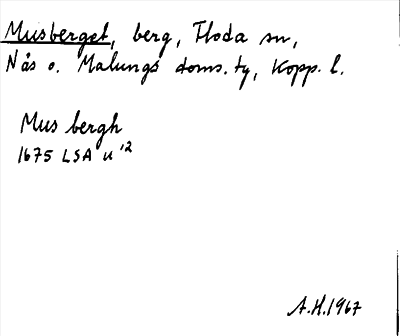 Musberget, berg, Floda sn,
Nås o. Malungs doms. ty, Kopp. l.
Mus bergh
1675 LSA u '2
A.H. 1967